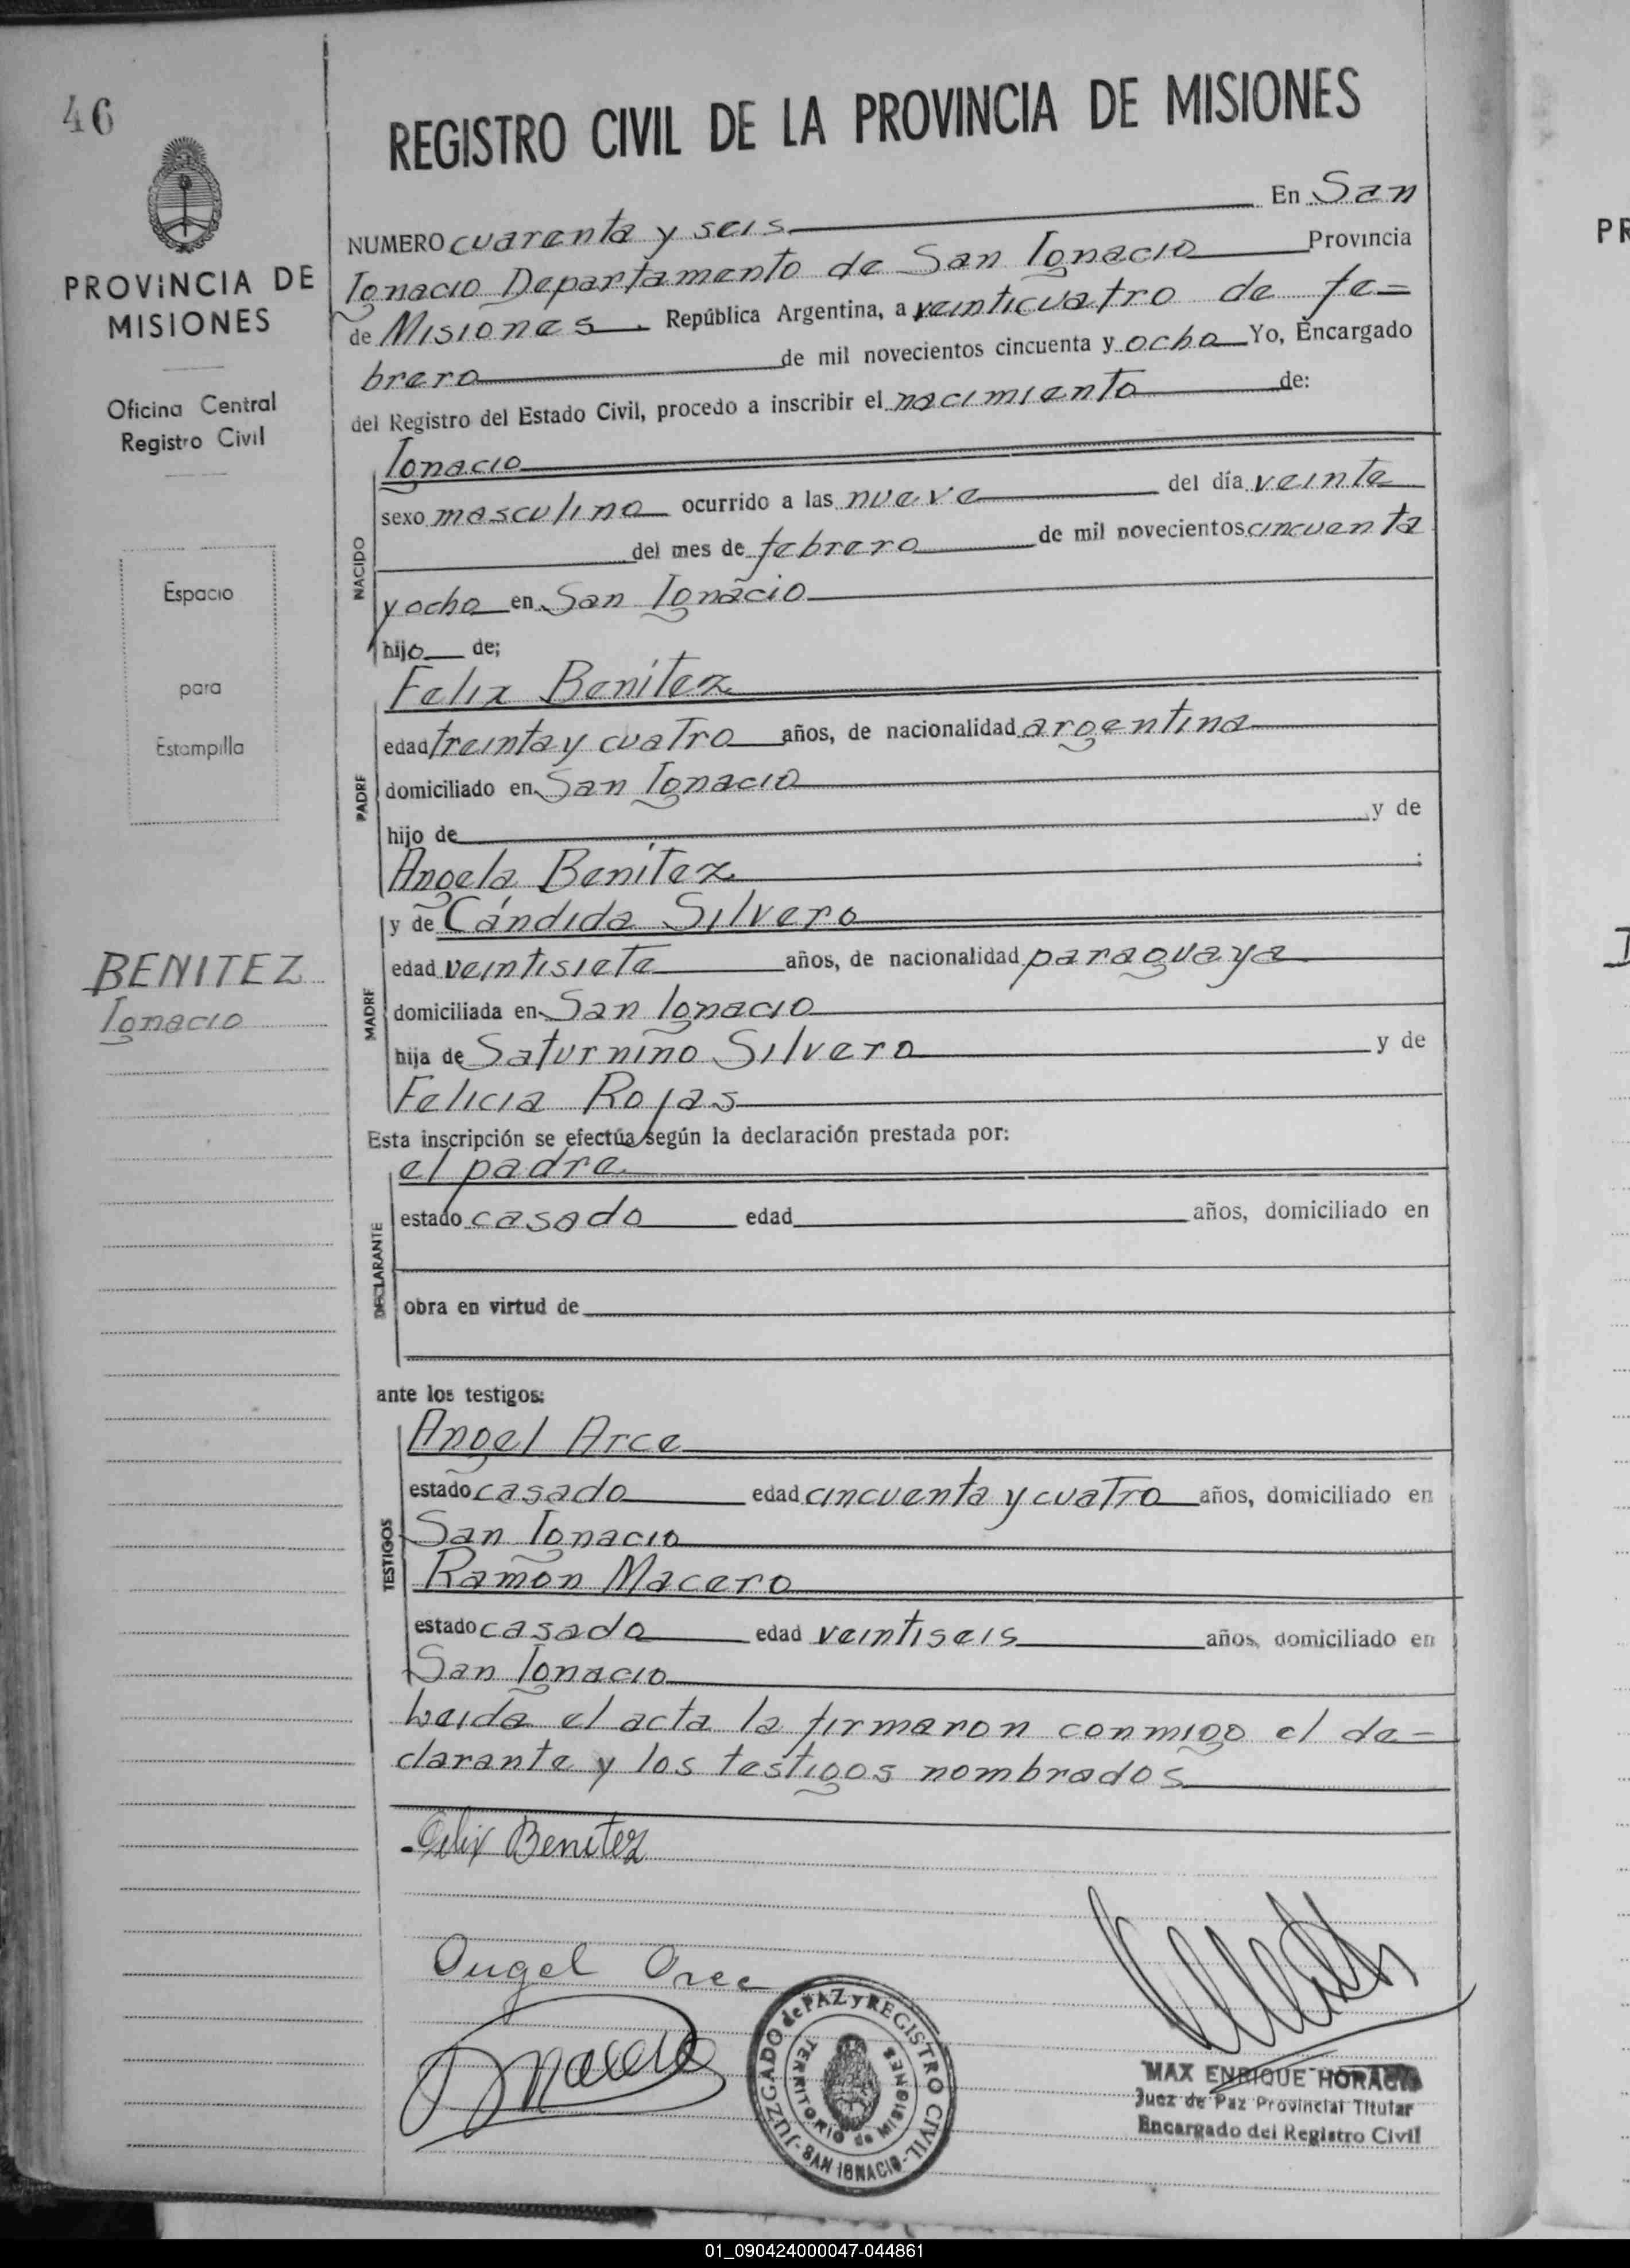 46
REGISTRO CIVIL DE LA PROVINCIA DE MISIONES
PROVINCIA DE
MISIONES
Oficina Central
Registro Civil
Espacio
para
Estampilla
BENITEZ
Ignacio
NUMERO cuarenta y seis En San
Ignacio Departamento de San Ignacio Provincia
de Misiones. República Argentina, a veinticuatro de fe=
brero de mil novecientos cincuenta y ocho Yo, Encargado
del Registro del Estado Civil, procedo a inscribir el nacimiento de:
NACIDO
Ignacio
sexo masculino ocurrido a las nueve del día veinte
del mes de febrero de mil novecientos cincuenta
y ocho en San Ignacio
hijo de;
PADRE
Felix Benítez
edad treinta y cuatro años, de nacionalidad argentina
domiciliado en San Ignacio
hijo de y de
Angela Benítez ;
MADRE
y de Cándida Silvero
edad veintisiete años, de nacionalidad paraguaya
domiciliada en San Ignacio
hija de Saturnino Silvero y de
Felicia Rojas
Esta inscripción se efectúa según la declaración prestada por:
DECLARANTE
el padre
estado casado edad años, domiciliado en
obra en virtud de
ante los testigos:
TESTIGOS
Angel Arce
estado casado edad cincuenta y cuatro años, domiciliado en
San Ignacio
Ramón Macero
estado casado edad veintiseis años, domiciliado en
San Ignacio
Leida el acta la firmaron conmigo el de=
clarante y los testigos nombrados
Felix Benitez
Angel Arce
Macero
JUZGADO de PAZ y REGISTRO CIVIL
TERRITORIO de MISIONES
- SAN IGNACIO -
MAX ENRIQUE HORACIO
Juez de Paz Provincial Titular
Encargado del Registro Civil
PR
01_090424000047-044861